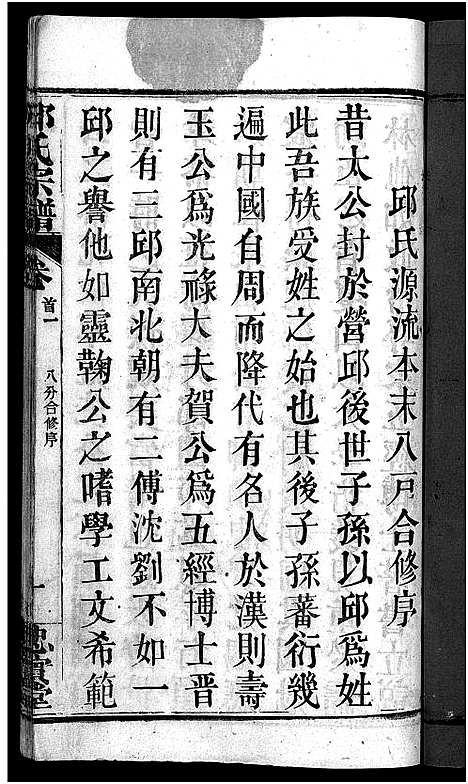 邱氏源流本末八戸合修序
昔太公封於營邱後世子孫以邱爲姓
此吾族受姓之始也其後子孫蕃衍幾
遍中國自周而降代有名人於漢則壽
玉公爲光祿大夫賀公爲五經博士晋
則有三邱南北朝有二傅沈劉不如一
邱之譽他如靈鞠公之嗜學工文希範
邱氏宗譜 卷 首一 八分合修序 一 忠實堂